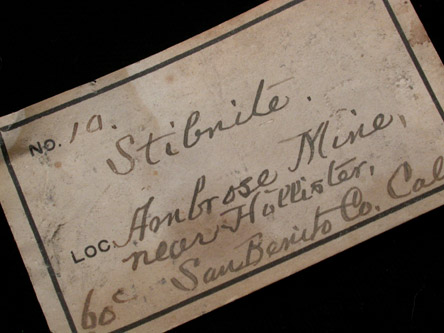 No. 10.
Stibnite.
LOC. Ambrose Mine,
near Hollister,
San Benito Co. Cal
60c